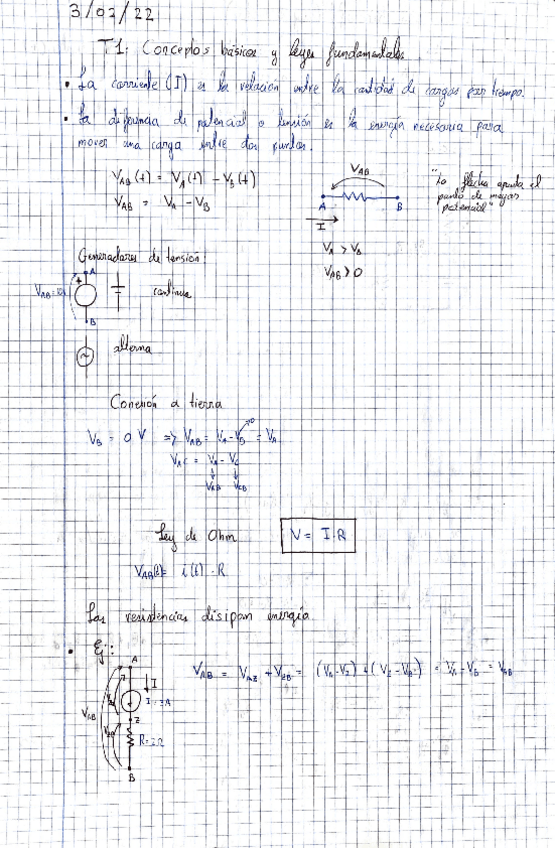 3/02/22
T1: Conceptos básicos y leyes fundamentales
• La corriente (I) es la relación entre la cantidad de cargas por tiempo.
• La diferencia de potencial o tensión es la energía necesaria para
mover una carga entre dos puntos.
V_AB(t) = V_A(t) - V_B(t)
V_AB = V_A - V_B
V_AB
A B
I
V_A > V_B
V_AB > 0
"La flecha apunta el
punto de mayor
potencial"
Generadores de tensión
A
+
V_AB =
B
continua
~
alterna
Conexión a tierra
V_B = 0 V => V_AB = V_A - V_B = V_A
0
V_AC = V_A - V_C
V_AB V_CB
Ley de Ohm
V = I·R
V_AB(t) = i(t) · R
Las resistencias disipan energía
• Ej:
A
I
V_AB
Z
R=2Ω
B
V_AB = V_AZ + V_ZB = (V_A - V_Z) + (V_Z - V_B) = V_A - V_B = V_AB